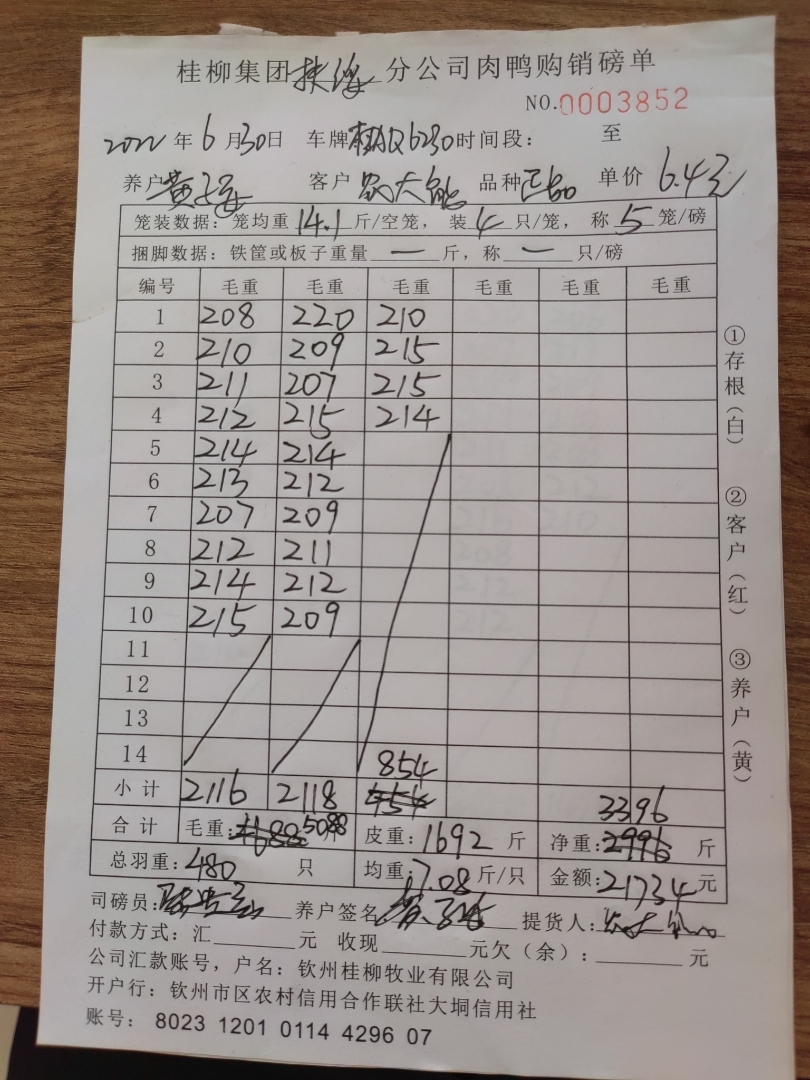 桂柳集团扶绥分公司肉鸭购销磅单
NO.0003852
2022年6月30日 车牌 6230时间段: 至
养户黄 客户 大 品种 单价 6.4元
笼装数据:笼均重14.1斤/空笼,装4只/笼,称5笼/磅
捆脚数据:铁筐或板子重量一斤,称一只/磅
编号 毛重 毛重 毛重 毛重 毛重 毛重
1 208 220 210
2 210 209 215
3 211 207 215
4 212 215 214
5 214 214
6 213 212
7 207 209
8 212 211
9 214 212
10 215 209
11
12
13
14 854
小计 2116 2118 454 3396
合计 毛重:4688 5088斤 皮重:1692斤 净重:2996斤
总羽重:480只 均重:7.08斤/只 金额:21734元
司磅员: 养户签名 提货人:
付款方式:汇______元 收现______元欠(余):______元
公司汇款账号,户名:钦州桂柳牧业有限公司
开户行:钦州市区农村信用合作联社大垌信用社
账号:8023 1201 0114 4296 07
①存根(白)
②客户(红)
③养户(黄)